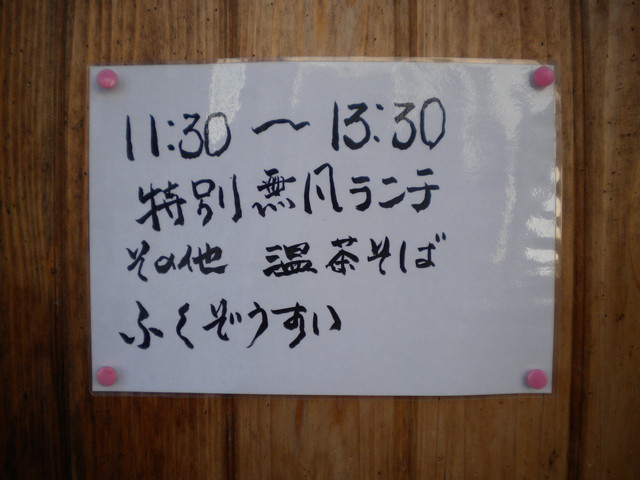 11:30 〜 13:30
特別 無凡ランチ
その他 温茶そば
ふくぞうすい